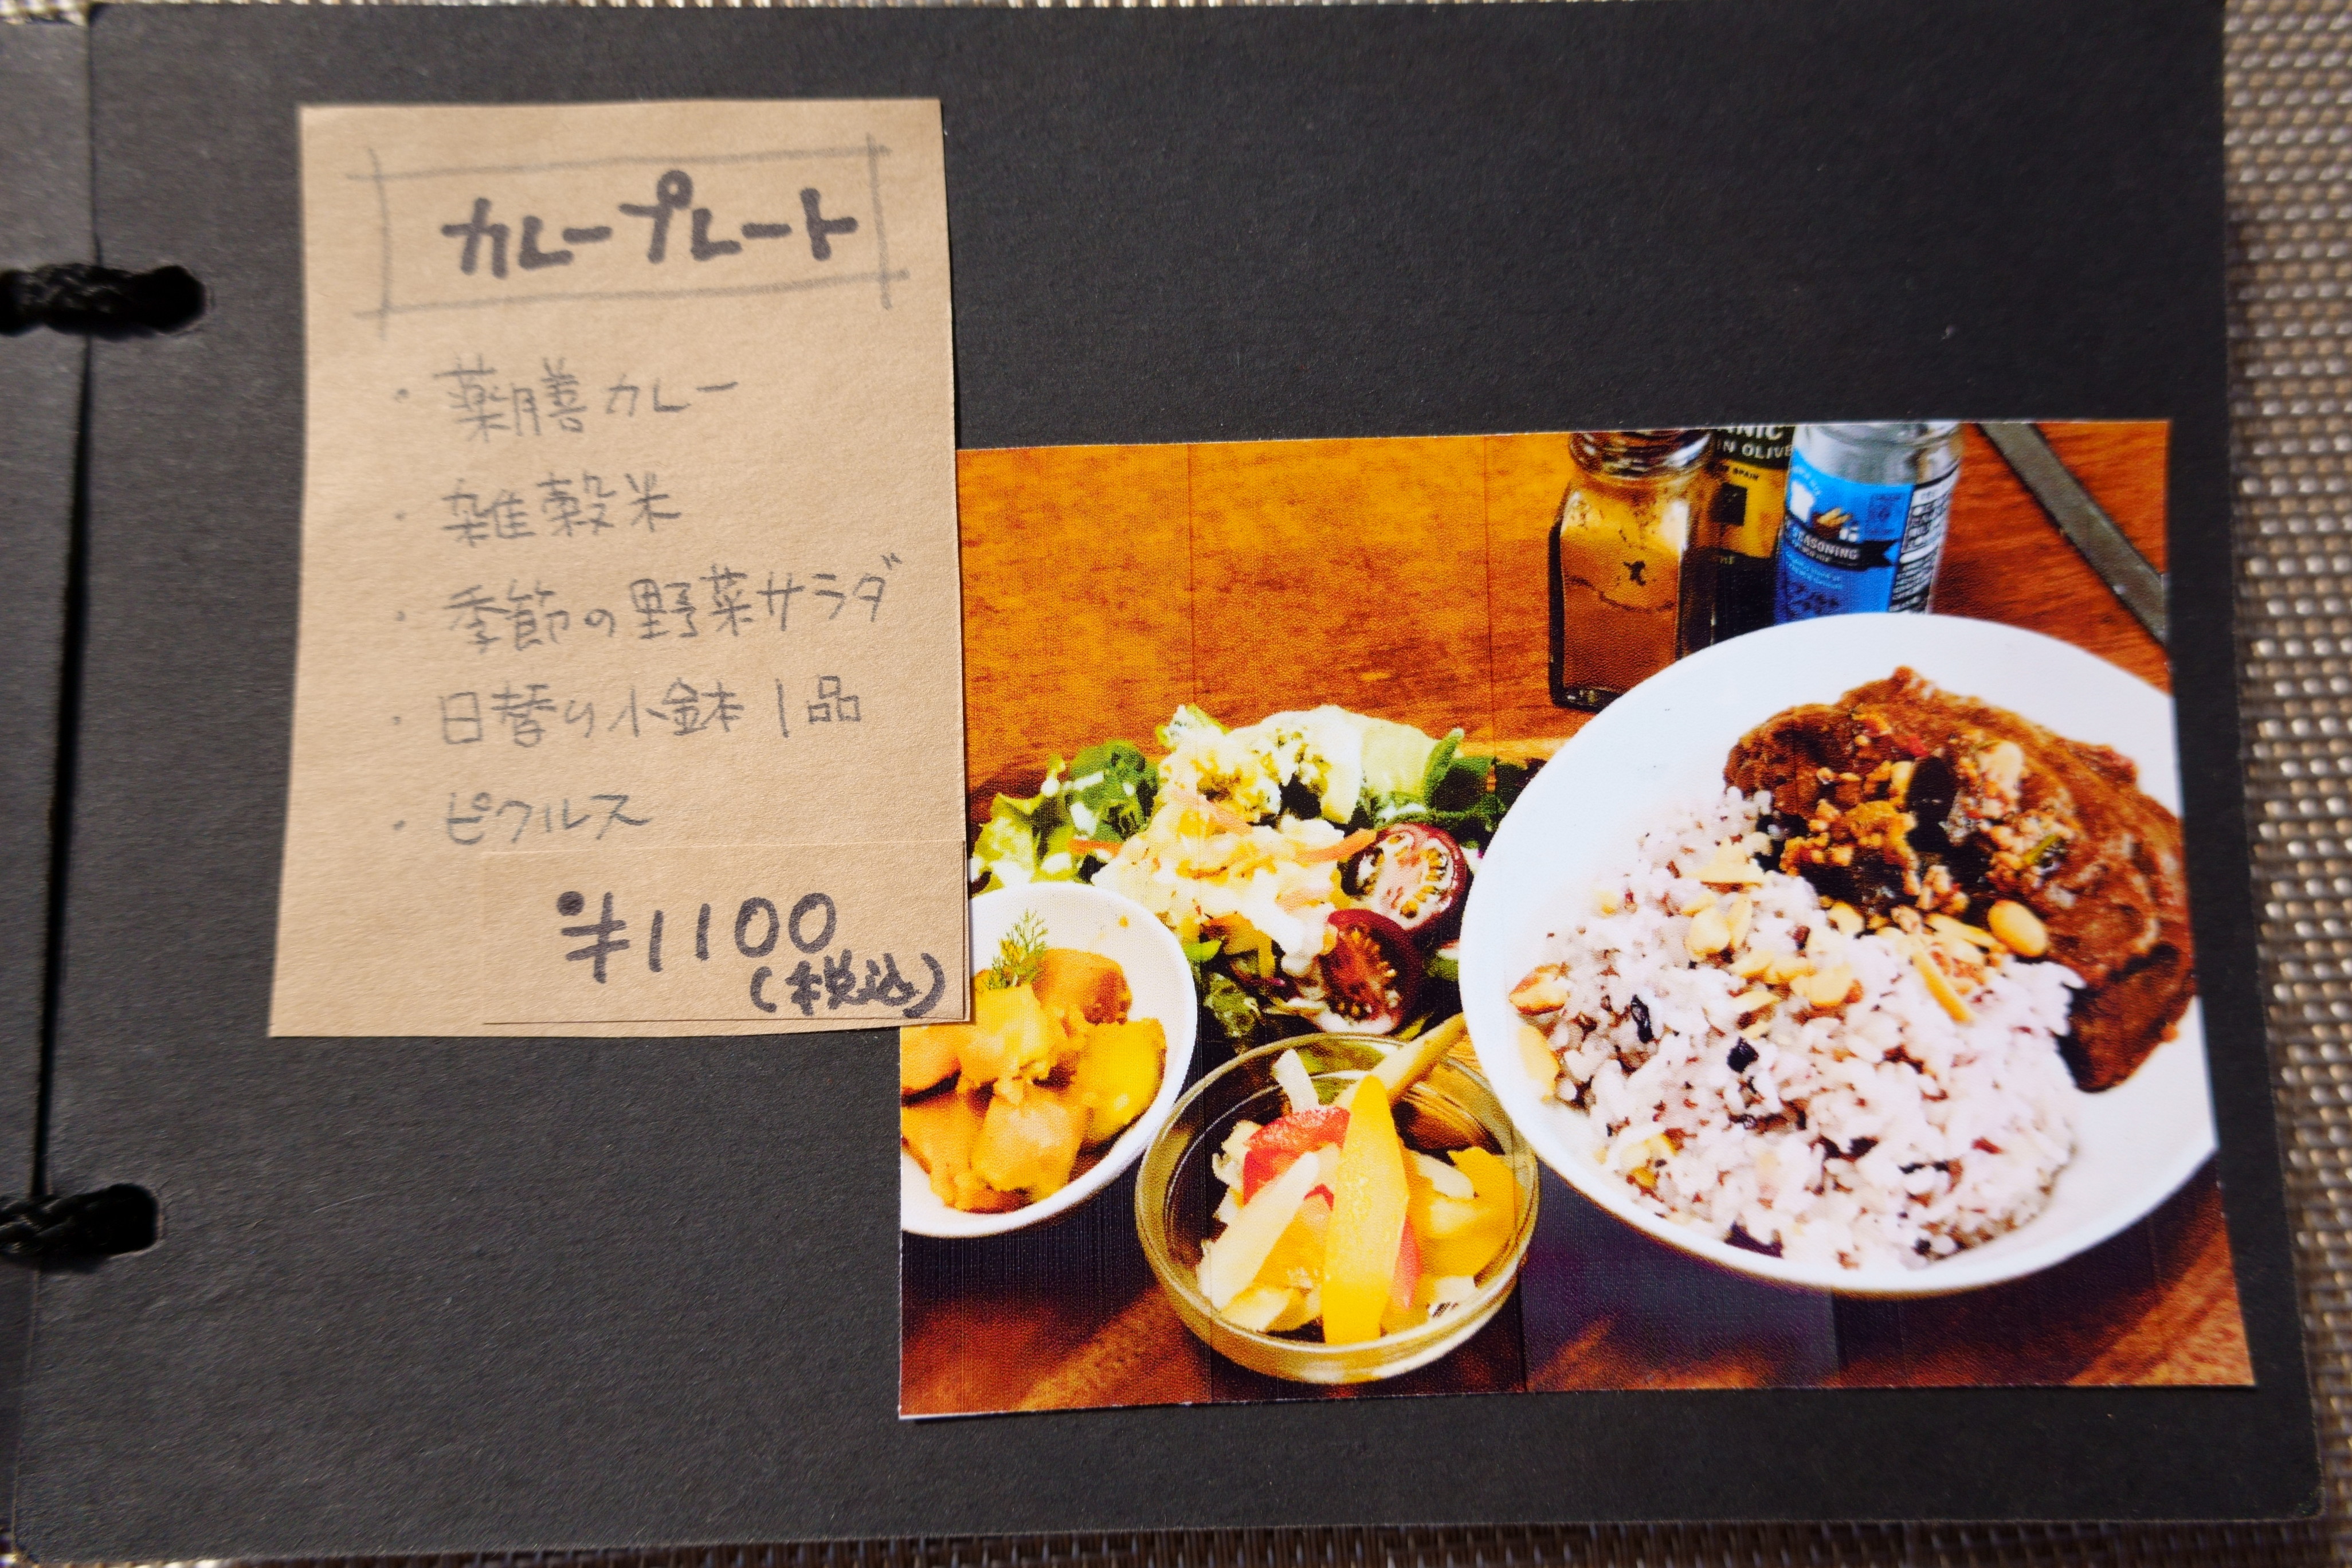 カレープレート
・薬膳カレー
・雑穀米
・季節の野菜サラダ
・日替り小鉢1品
・ピクルス
¥1100
(税込)
NIC
IN OLIVE
SPAIN
SEASONING